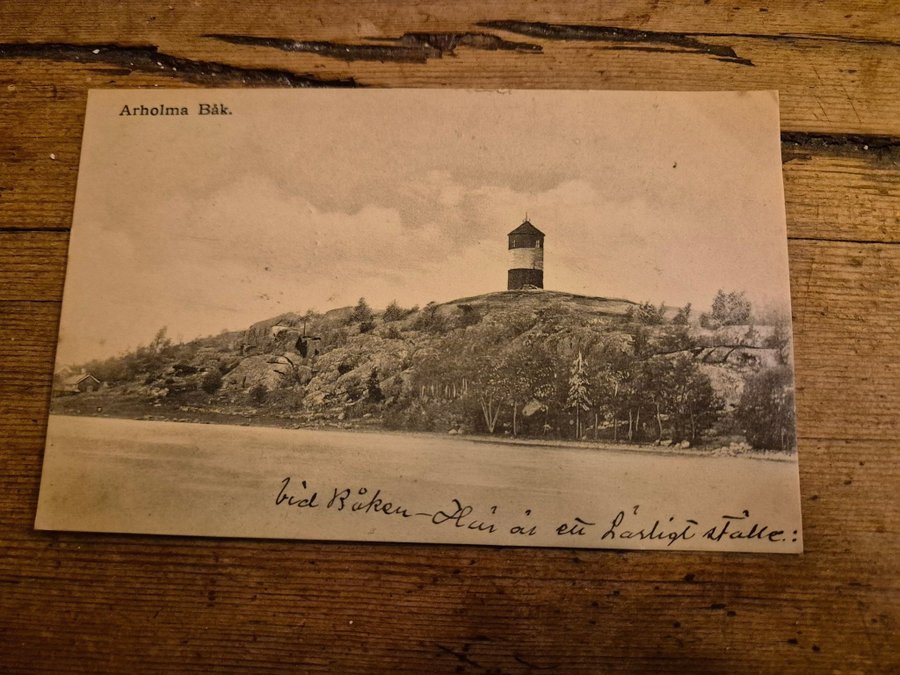 Arholma Båk.
Vid Båken - Här är ett Härligt ställe.: